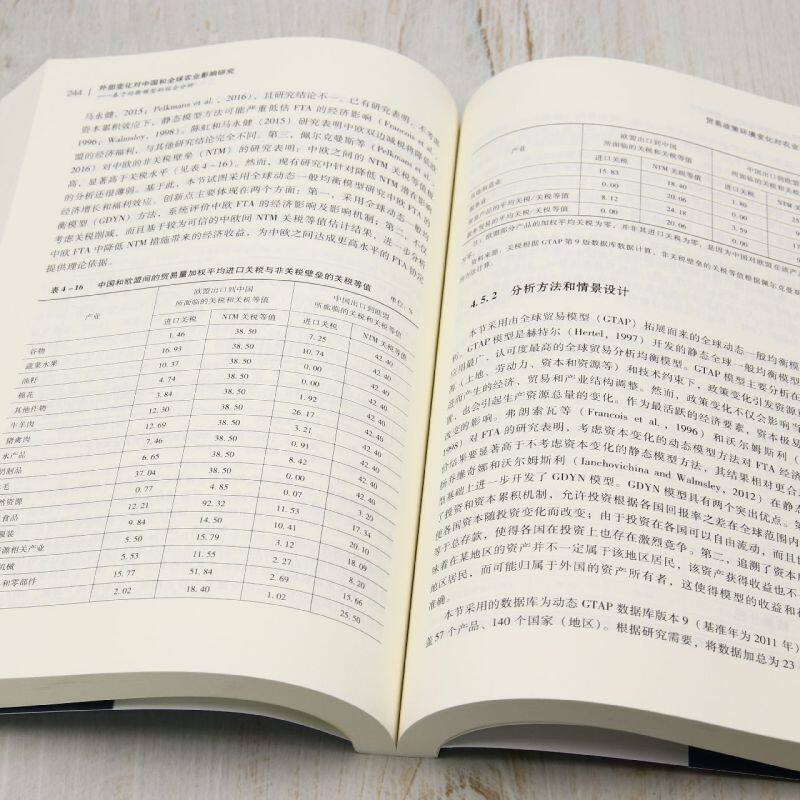 244 外部变化对中国和全球农业影响研究
马永健，2015；Pelkmans et al.，2016），且研究结论不一。已有研究表明，不考虑
资本累积效应下，静态模型方法可能严重低估 FTA 的经济影响（Francois et al.，
1996；Walmsley，1998）。陈虹和马永健（2015）研究表明中欧双边减税将降低欧
盟的经济福利，与其他研究结论完全不同。第三，佩尔克曼斯等（Pelkmans et al.，
2016）对中欧的非关税壁垒（NTM）的研究表明：中欧之间的 NTM 关税等值
高，显著高于关税水平（见表 4－16）。然而，现有研究中针对降低 NTM 潜在影响
的分析还很薄弱。基于此，本节试图采用全球动态一般均衡模型研究中欧 FTA 的
经济增长和福利效应。创新点主要体现在两个方面：第一，采用全球动态一般均
衡模型（GDYN）方法，系统评价中欧 FTA 的经济影响及影响机制；第二，不仅
考虑关税削减，而且基于较为可信的中欧间 NTM 关税等值估计结果，进一步分析
中欧 FTA 中降低 NTM 措施带来的经济收益，为中欧之间达成更高水平的 FTA 协定
提供理论依据。
表 4－16 中国和欧盟间的贸易量加权平均进口关税与非关税壁垒的关税等值 单位：%
产业 欧盟出口到中国 中国出口到欧盟
所面临的关税和关税等值 所面临的关税和关税等值
进口关税 NTM 关税等值 进口关税 NTM 关税等值
谷物 1.46 38.50 7.25 42.40
蔬菜水果 16.93 38.50 10.74 42.40
油籽 10.37 38.50 0.00 42.40
棉花 4.74 38.50 0.00 42.40
其他作物 3.84 38.50 1.92 42.40
牛羊肉 12.30 38.50 26.17 42.40
猪禽肉 12.69 38.50 3.21 42.40
水产品 7.46 38.50 0.91 42.40
奶制品 6.65 38.50 8.42 42.40
毛 37.04 38.50 0.00 42.40
然资源 0.77 4.85 0.07 3.20
食品 12.21 92.32 11.53 17.34
服装 9.84 14.50 10.41 20.10
资源相关产业 5.50 15.79 3.12 18.09
机械 5.53 11.55 2.27 8.20
和零部件 15.77 51.84 2.69 15.66
2.02 18.40 1.02 25.50
贸易政策环境变化对农业
产业 欧盟出口到中国 中国出口到欧盟
所面临的关税和关税等值 所面临的关税和关税等
进口关税 NTM 关税等值 进口关税
15.83 18.40 1.80
0.00 20.06 0.00
8.12 24.18 3.59
0.00 20.06 0.00
4.5.2 分析方法和情景设计
本节采用由全球贸易模型（GTAP）拓展而来的全球动态一般均衡模
析。GTAP 模型是赫特尔（Hertel，1997）开发的静态全球一般均衡模型
应用最广、认可度最高的全球贸易分析均衡模型。GTAP 模型主要分析在
源（土地、劳动力、资本和资源等）和技术约束下，政策变化引发资源
进而产生的经济、贸易和产业结构调整。然而，政策变化不仅会影响当
置，也会引起生产资源总量的变化。作为最活跃的经济要素，资本极易
改变的影响。弗朗索瓦等（Francois et al.，1996）和沃尔姆斯利（
1998）对 FTA 的研究表明，考虑资本变化的动态模型方法对 FTA 经济
价结果要显著高于不考虑资本变化的静态模型方法，其结果相对更合
杨乔维奇娜和沃尔姆斯利（Ianchovichina and Walmsley，2012）在静态
型基础上进一步开发了 GDYN 模型。GDYN 模型具有两个突出优点。第
了投资和资本累积机制，允许投资根据各国回报率之差在全球范围内
使各国资本随投资变化而改变；由于投资在各国可以自由流动，而且
等于总存款，使得各国在投资上也存在激烈竞争。第二，追溯了资本
味着在某地区的资产并不一定属于该地区居民，该资产获得收益也不
地区居民，而可能归属于外国的资产所有者，这使得模型的收益和
准确。
本节采用的数据库为动态 GTAP 数据库版本 9（基准年为 2011 年）
盖 57 个产品、140 个国家（地区）。根据研究需要，将数据加总为 23